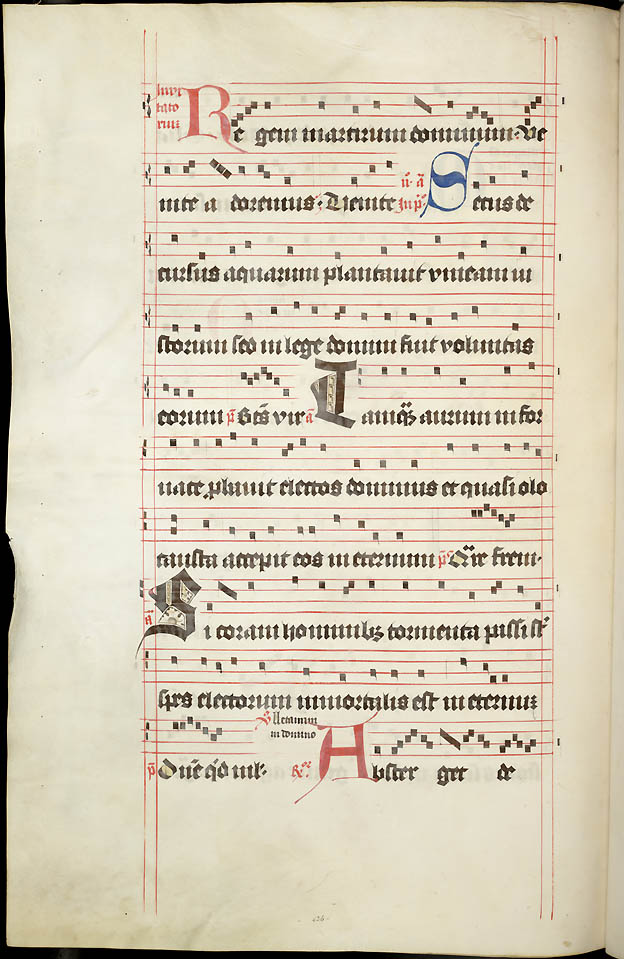 Invi
tato
rium
Regem martirum dominum. Ve
nite a doremus. Venite In p̄ n̄ · ā Secus de
cursus aquarum plantavit vineam iu
storum sed in lege domini fuit voluntas
eorum p̄ Bt̄s vir ā Tamq̄ȝ aurum in for
nace probavit electos dominus et quasi olo
causta accepit eos in eternum p̄ Q̄re frem·
ā Si coram hominibȝ tormenta passi st̄
spes electorum inmortalis est in eternuȝ
℣ Letamini
in domino
p̄ Dn̄e qͥd ml̄t· Abster get de